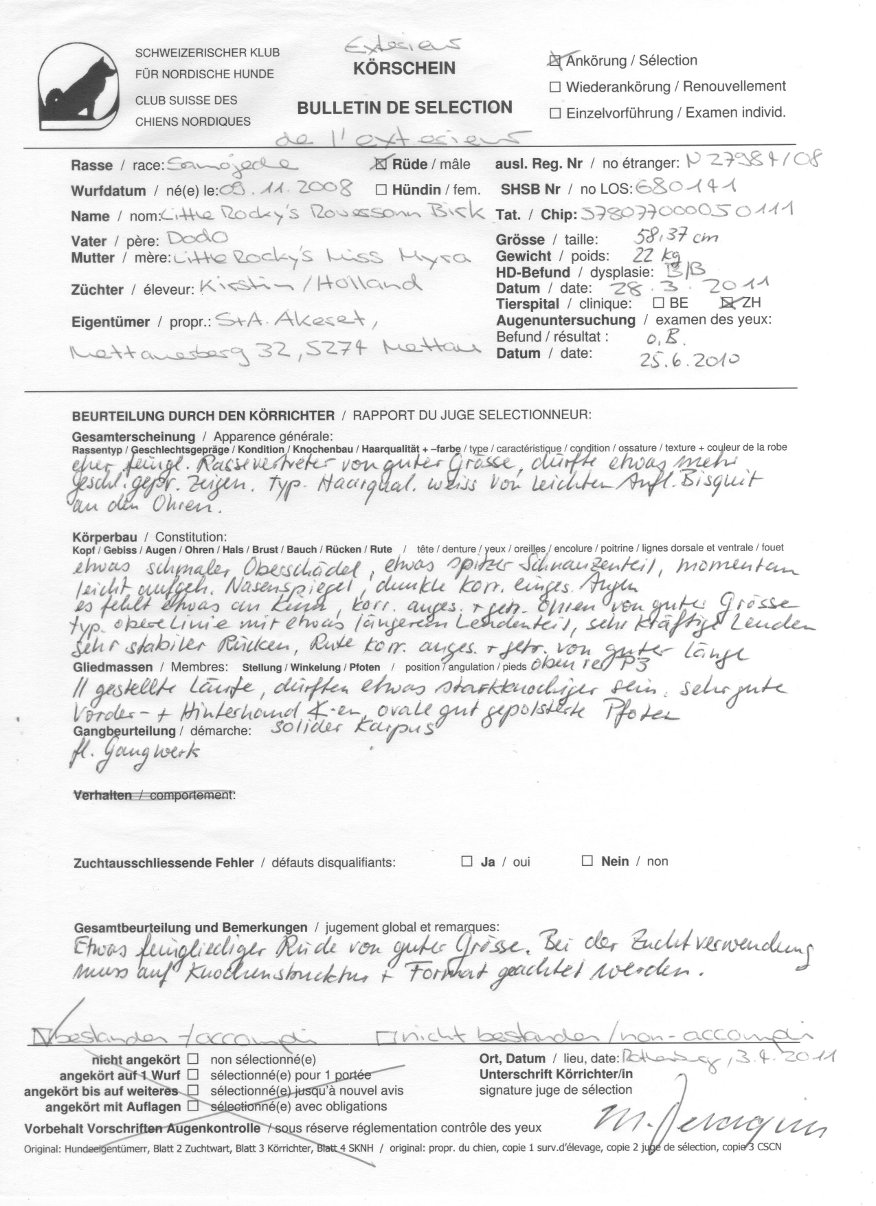 SCHWEIZERISCHER KLUB
FÜR NORDISCHE HUNDE
CLUB SUISSE DES
CHIENS NORDIQUES
Exterieur
KÖRSCHEIN
BULLETIN DE SELECTION
de l'exterieur
☒ Ankörung / Sélection
☐ Wiederankörung / Renouvellement
☐ Einzelvorführung / Examen individ.
Rasse / race: Samojede ☒ Rüde / mâle ausl. Reg. Nr / no étranger: N 27984/08
Wurfdatum / né(e) le: 09.11.2008 ☐ Hündin / fem. SHSB Nr / no LOS: 680141
Name / nom: Little Rocky's Rovessonn Birk Tat. / Chip: 578077000050111
Vater / père: Dodo Grösse / taille: 58,37 cm
Mutter / mère: Little Rocky's Miss Myra Gewicht / poids: 22 kg
HD-Befund / dysplasie: B/B
Züchter / éleveur: Kirstin / Holland Datum / date: 28.3.2011
Tierspital / clinique: ☐ BE ☒ ZH
Eigentümer / propr.: S+A. Akeset, Augenuntersuchung / examen des yeux:
Mettauerberg 32, 5274 Mettau Befund / résultat : o.B.
Datum / date: 25.6.2010
BEURTEILUNG DURCH DEN KÖRRICHTER / RAPPORT DU JUGE SELECTIONNEUR:
Gesamterscheinung / Apparence générale:
Rassentyp / Geschlechtsgepräge / Kondition / Knochenbau / Haarqualität + –farbe / type / caractéristique / condition / ossature / texture + couleur de la robe
eher feingl. Rassevertreter von guter Grösse, dürfte etwas mehr
geschl.gepr. zeigen. typ. Haarqual. weiss von leichten Anfl. Bisquit
an den Ohren.
Körperbau / Constitution:
Kopf / Gebiss / Augen / Ohren / Hals / Brust / Bauch / Rücken / Rute / tête / denture / yeux / oreilles / encolure / poitrine / lignes dorsale et ventrale / fouet
etwas schmaler Oberschädel, etwas spitzer Schnauzenteil, momentan
leicht aufgeh. Nasenspiegel, dunkle korr. einges. Augen
es fehlt etwas an Kinn, korr. anges. + getr. Ohren von guter Grösse
typ. obere Linie mit etwas längerem Lendenteil, sehr kräftige Lenden
sehr stabiler Rücken, Rute korr. anges. + getr. von guter länge
Gliedmassen / Membres: Stellung / Winkelung / Pfoten / position / angulation / pieds oben re P3
// gestellte Läufe, dürften etwas starkknochiger sein. sehr gute
Vorder- + Hinterhand ∢-en, ovale gut gepolsterte Pfoten
Gangbeurteilung / démarche: solider Karpus
fl. Gangwerk
Verhalten / comportement:
Zuchtausschliessende Fehler / défauts disqualifiants: ☐ Ja / oui ☐ Nein / non
Gesamtbeurteilung und Bemerkungen / jugement global et remarques:
Etwas feingliediger Rüde von guter Grösse. Bei der Zuchtverwendung
muss auf Knochenstruktur + Format geachtet werden.
☒ bestanden / accompli ☐ nicht bestanden / non-accompli
nicht angekört ☐ non sélectionné(e)
angekört auf 1 Wurf ☐ sélectionné(e) pour 1 portée
angekört bis auf weiteres ☐ sélectionné(e) jusqu'à nouvel avis
angekört mit Auflagen ☐ sélectionné(e) avec obligations
Ort, Datum / lieu, date: Rothenburg, 3.4.2011
Unterschrift Körrichter/in
signature juge de sélection
Vorbehalt Vorschriften Augenkontrolle / sous réserve réglementation contrôle des yeux
Original: Hundeeigentümerr, Blatt 2 Zuchtwart, Blatt 3 Körrichter, Blatt 4 SKNH / original: propr. du chien, copie 1 surv.d'élevage, copie 2 juge de sélection, copie 3 CSCN